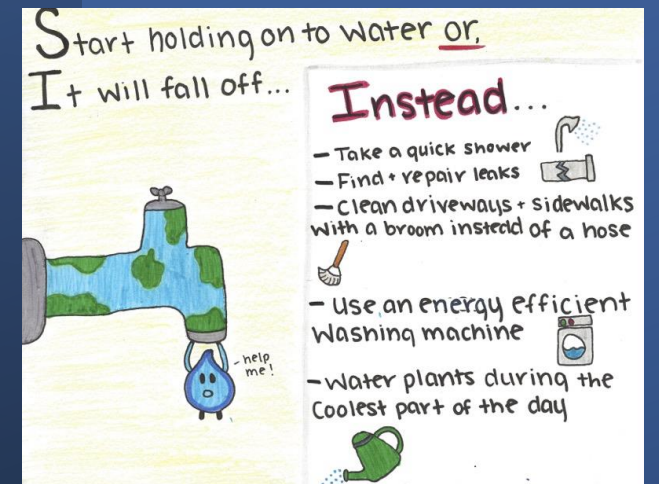 Start holding on to water or,
It will fall off...
Instead...
- Take a quick shower
- Find + repair leaks
- Clean driveways + sidewalks
with a broom instead of a hose
- use an energy efficient
washing machine
- water plants during the
coolest part of the day
- help
me!